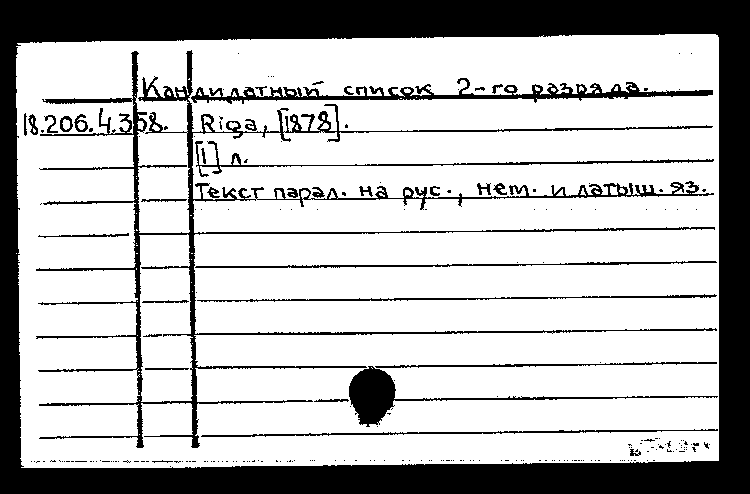 Кандидатный список 2-го разряда.
18.206.4.358. Riga, [1878].
[1] л.
Текст парал. на рус., нем. и латыш. яз.